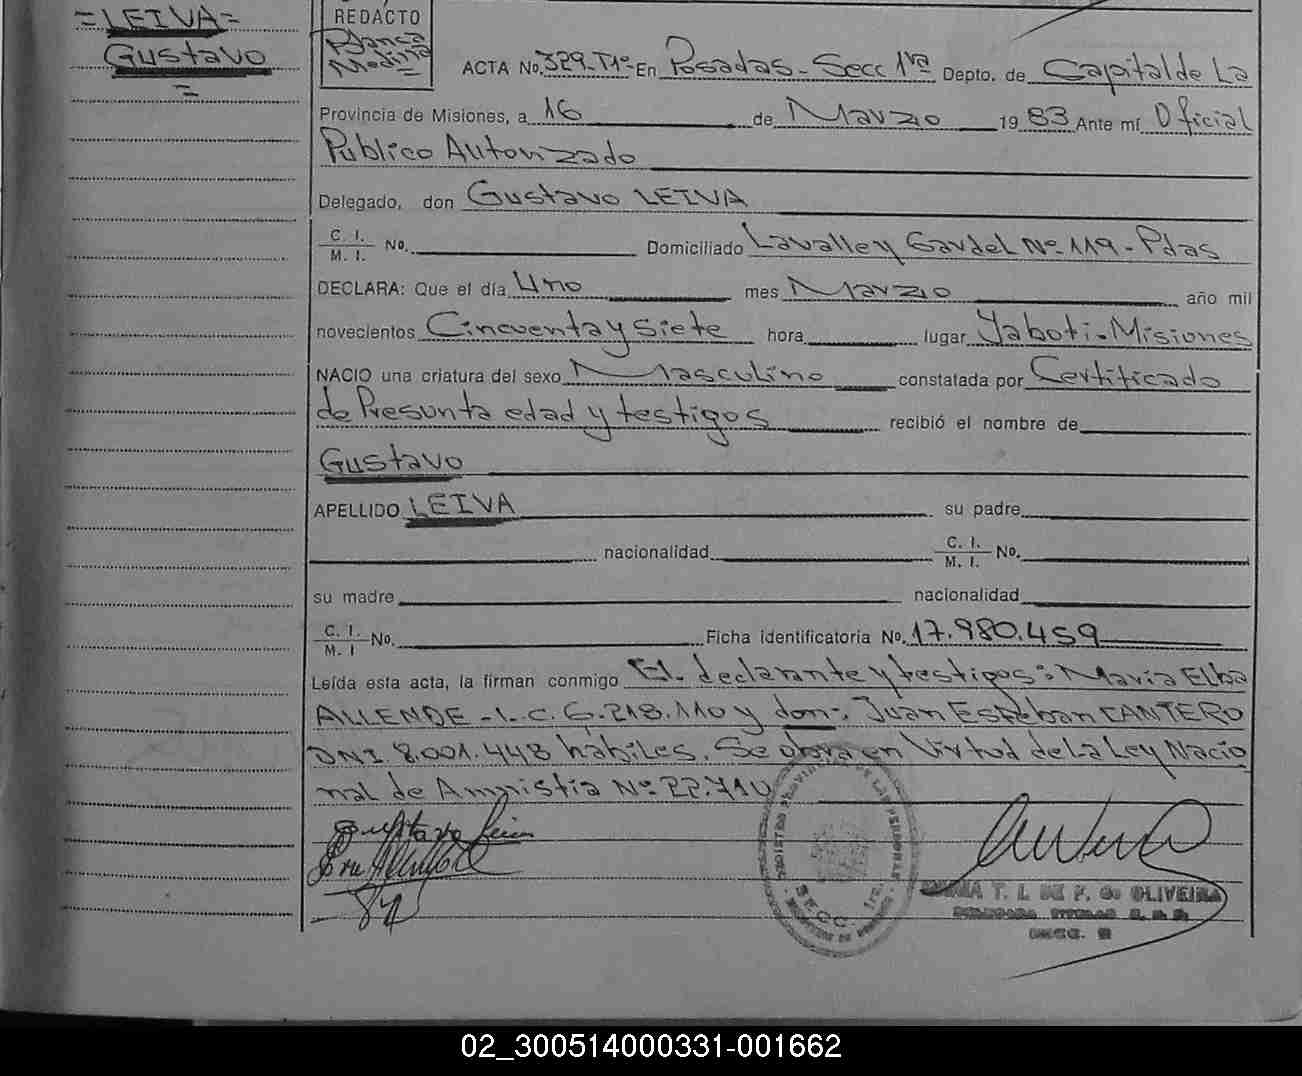 =LEIVA=
Gustavo
=
REDACTO
Blanca
Medina
ACTA No. 329-T1º En Posadas - Secc 1ra Depto. de Capital de La
Provincia de Misiones, a 16 de Marzo 1983 Ante mí Oficial
Publico Autorizado
Delegado, don Gustavo LEIVA
C. I.
M. I. No. Domiciliado Lavalle y Gardel Nº 119 - Pdas
DECLARA: Que el día Uno mes Marzo año mil
novecientos Cincuenta y Siete hora lugar Yaboti-Misiones
NACIO una criatura del sexo Masculino constatada por Certificado
de Presunta edad y testigos recibió el nombre de
Gustavo
APELLIDO LEIVA su padre
nacionalidad C. I.
M. I. No.
su madre nacionalidad
C. I.
M. I No. Ficha identificatoria No. 17.980.459
Leída esta acta, la firman conmigo El declarante y testigos: Maria Elba
ALLENDE - L.C. 6.218.110 y don: Juan Esteban CANTERO
DNI 8.001.448 habiles. Se obra en Virtud de La Ley Nacio
nal de Amnistia Nº 22.710
Gustavo Leiva
SECC. 1ra.
MARIA T. L. DE F. de OLIVEIRA
SECC.
02_300514000331-001662